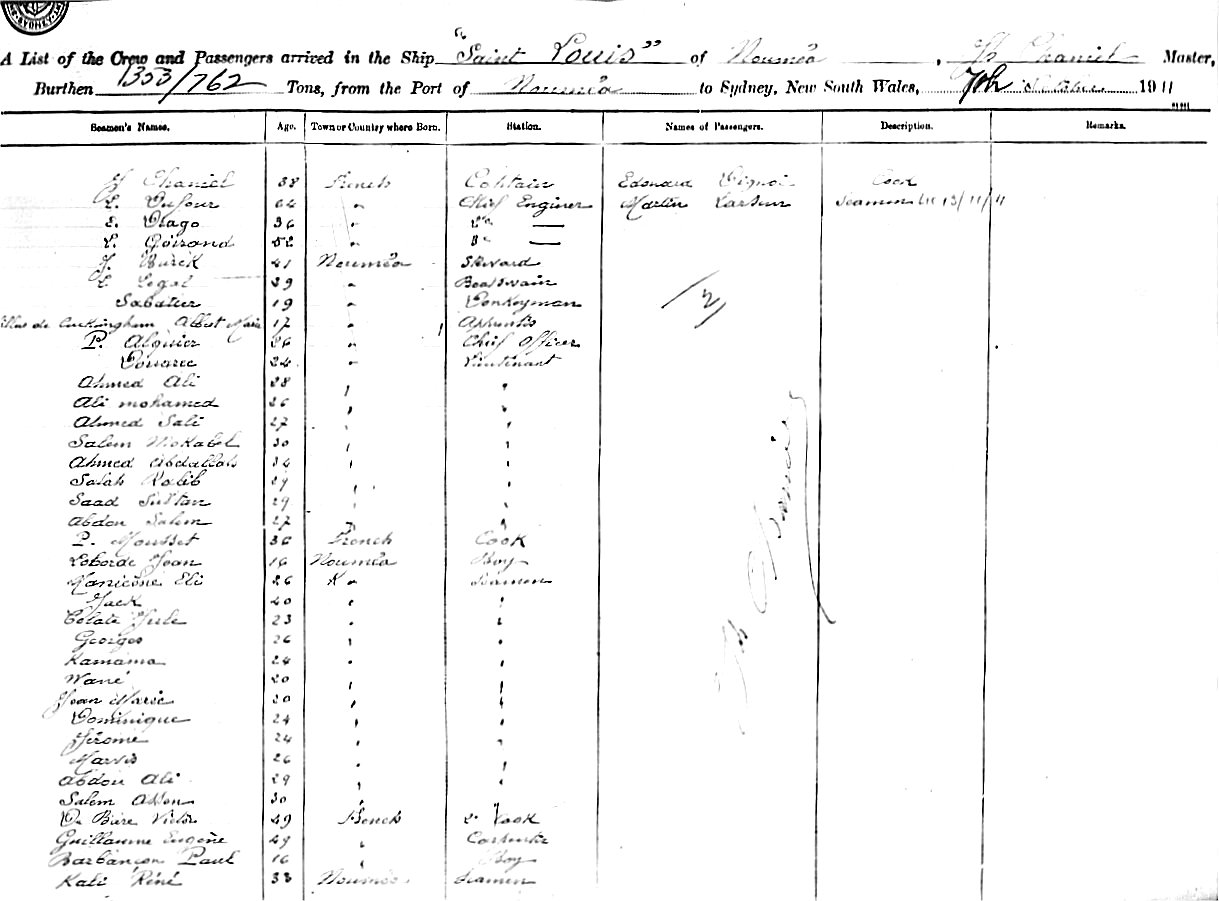 SYDNEY
A List of the Crew and Passengers arrived in the Ship "Saint Louis" of Nouméa, Th Chaniel Master,
Burthen 1353/762 Tons, from the Port of Nouméa to Sydney, New South Wales, 7th 1911
Seamen's Names. Age. Town or Country where Born. Station. Names of Passengers. Description. Remarks.
Chaniel 38 French Captain Edouard Cook
L. Dufour 64 " Chief Enginer Martin Larsen Seamen 13/11/11
E. Drago 36 " 2d —
L. Goirand 52 " 3d —
J. Burck 41 Nouméa Steward
L. Legal 29 " Boatswain
Sabatier 19 " Donkeyman
de Cuckingham Albert Marie 17 " Aprentis
P. Alquier 26 " Chief Officer
24 " Lieutenant
Ahmed Ali 28 " "
Ali mohamed 26 " "
Ahmed Sali 27 " "
Salem Mokabel 30 " "
Ahmed Abdallah 34 " "
Salah 29 " "
Saad Sultan 29 " "
Abdou Salem 27 " "
P. Mousset 36 French Cook
Laborde Jean 16 Nouméa Boy
Eli 26 " Seamen
Jack 40 " "
Celate Jule 23 " "
Georges 26 " "
Kamama 24 " "
Wané 20 " "
Jean Marie 20 " "
Dominique 24 " "
Jérome 24 " "
Marvis 26 " "
Abdou Ali 29 " "
Salem 30 " "
Victor 49 French 2d Cook
Guillaume Eugène 49 " Carpenter
Barbançon Paul 16 " Boy
Kali Réné 33 Nouméa Seamen